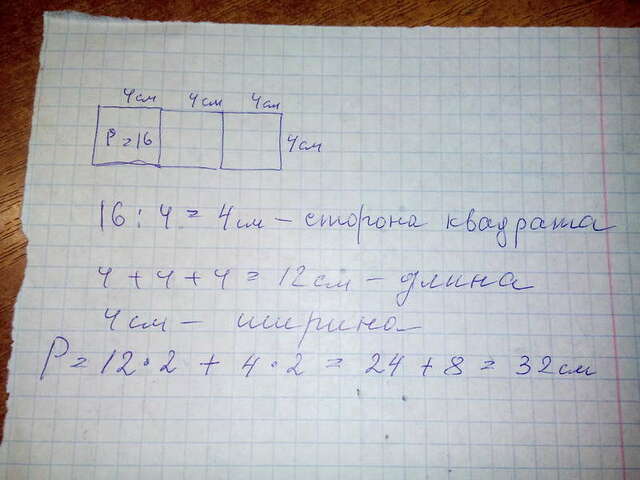 4см 4см 4см
P = 16 4см
16 : 4 = 4см - сторона квадрата
4 + 4 + 4 = 12см - длина
4см - ширина
P = 12 · 2 + 4 · 2 = 24 + 8 = 32см